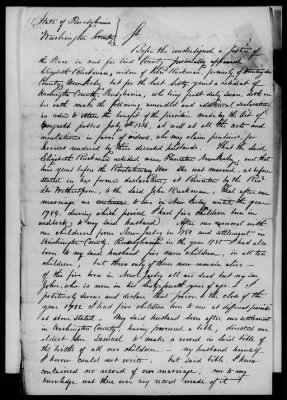 State of Pennsylvania
Washington County
Before the undersigned a Justice of
the Peace in and for said County, personally appeared
Elizabeth Ruckman, widow of John Ruckman, formerly of
County, New Jersey, but for the last forty years a resident of
Washington County, Pennsylvania, who being first duly sworn, doth on
her oath make the following amended and additional declaration
in order to obtain the benefit of the provision made by the Act of
Congress passed July 4th 1836, as well as all the acts and
resolutions in favor of widows, who may claim pensions, for
services rendered by their deceased husbands. That she the said
Elizabeth Ruckman resided near Princeton New Jersey, and that
years before the Revolutionary War she was married, as before
stated in her former declaration, at Princeton by the Revd.
Dr. Witherspoon, to the said John Ruckman. That after our
marriage we continued to live in New Jersey until the year
1784, during which period I had five children born in
wedlock, by my said husband. After we removed with
our children from New Jersey in 1784 and settlement in
Washington County, Pennsylvania in the year 1785 I had also
born to my said husband five more children, in all ten
children; but three only of them now remain alive -
of the five born in New Jersey all are dead but my son
John, who is now in his sixty fourth year of age. I
positively swear and declare that prior to the close of the
year 1792 I had five children born to me at different periods
as above stated. My said husband soon after our settlement
in Washington County, having procured a bible, directed our
eldest son Samuel to make a record in said bible of
the births of all our children - my husband himself
I know could not write. but said bible I know
contained no record of our marriage. nor to my
knowledge was there ever any record made of it